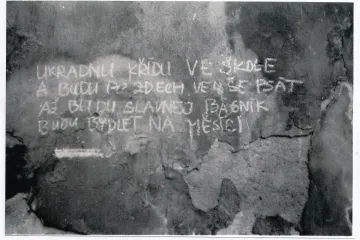 UKRADNU KŘÍDU VE ŠKOLE
A BUDU PO ZDECH VERŠE PSÁT
AŽ BUDU SLAVNEJ BÁSNÍK
BUDU BYDLET NA MĚSÍCI